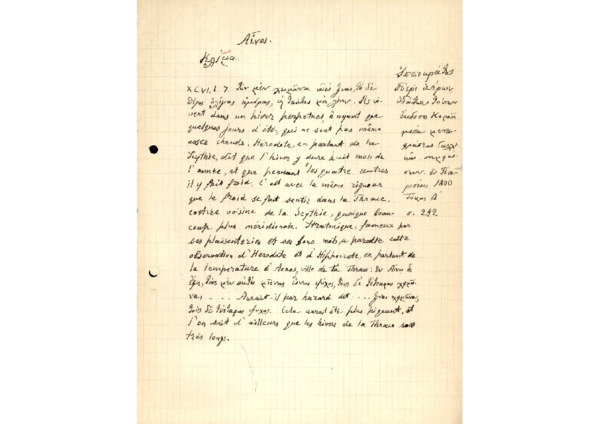 Αἶνος.
Κλίμα.
XCVI. 1. 7. Τὸν μὲν χειμῶνα αἰεὶ εἶναι, τὸ δὲ
θέρος ὀλίγας ἡμέρας, καὶ ταύτας μὴ λίην. Ils vi-
vent dans un hiver perpétuel, n'ayant que
quelques jours d'été, qui ne sont pas même
assez chauds. Hérodote, en parlant de la
Scythie, dit que l'hiver y dure huit mois de
l'année, et que pendant les quatre autres
il y fait froid. C'est avec la même rigueur
que le froid se fait sentir dans la Thrace,
contrée voisine de la Scythie, quoique beau-
coup plus méridionale. Stratonique, fameux par
ses plaisanteries et ses bons mots, a parodié cette
observation d'Hérodote et d'Hippocrate, en parlant de
la température d'Aenos, ville de la Thrace: ἐν Αἴνῳ
ὀκτὼ μὲν μῆνας εἶναι ψῦχος, τοὺς δὲ τέτταρας χειμῶ-
νας ... Aurait-il par hazard dit ... εἶναι χειμῶνα,
τοὺς δὲ τέτταρας ψῦχος. Cela aurait été plus piquant, et
l'on sait d'ailleurs que les hivers de la Thrace sont
très longs.
Ἱπποκράτους
Περὶ ἀέρων
ὑδάτων τόπων
ἔκδοσις Κοραῆ
Παρισίοις 1800
Τόμος Β
σ. 242